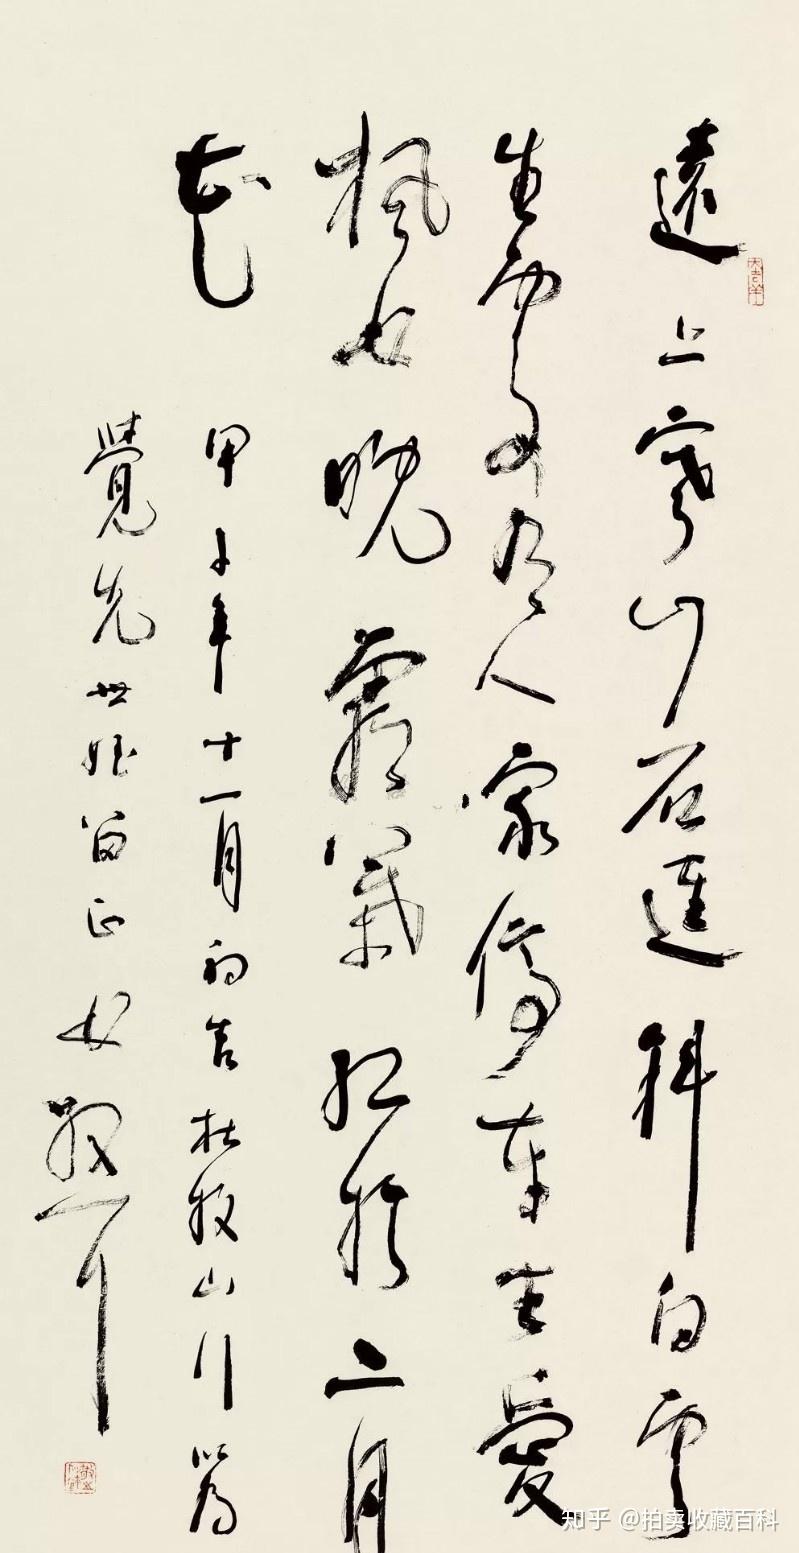 遠上寒山石逕斜白雲
生處有人家停車坐愛
楓林晚霜葉紅於二月
花
甲子年十一月初吉杜牧山行以為
覺先世姪留正林散耳
大吉羊
知乎 @拍卖收藏百科